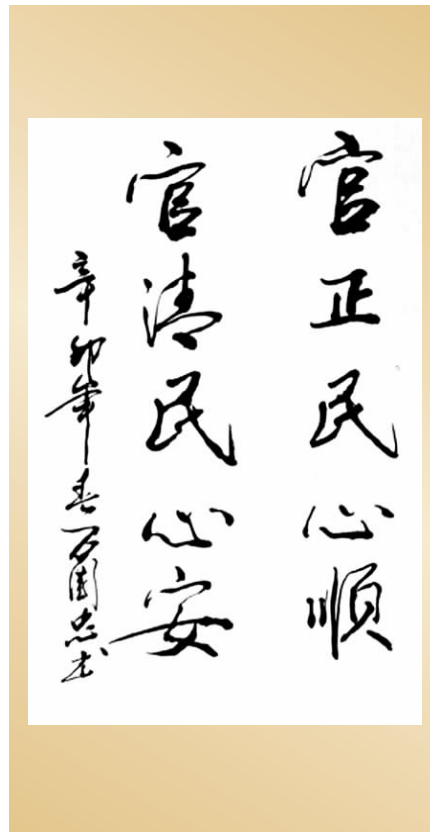 官正民心順
官清民心安
辛卯年春石國忠书